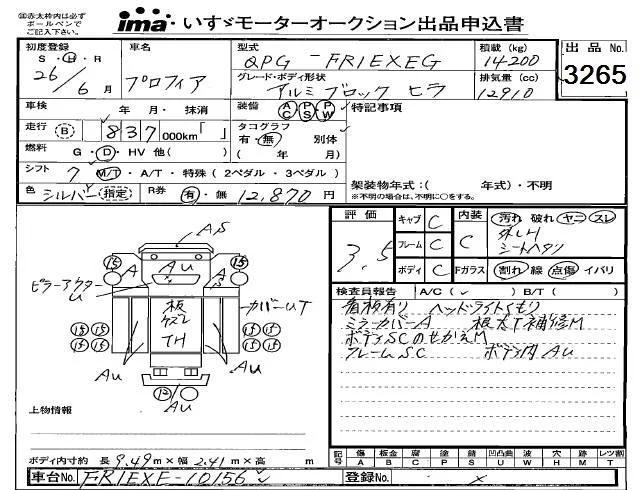 ㊟赤太枠内は必ず
ボールペンで
ご記入下さい。
ima いすゞモーターオークション出品申込書
初度登録
S・H・R
26/6月
車名
プロフィア
型式
QPG-FR1EXEG
積載(kg)
14200
グレード・ボディ形状
アルミブロック ヒラ
排気量(cc)
12910
出品No.
3265
車検 年・月・抹消
装備 AC PS PW
特記事項
走行 B 837,000km「 」
タコグラフ
有・無 別体
( 年 月)
燃料 G・D・HV 他( )
シフト 7 M/T・A/T・特殊(2ペダル・3ペダル)
架装物年式:( 年式)・不明
※不明の場合は、不明に○をする。
色 シルバー 指定
R券 有・無 12,870円
評価
3.5
キャブ C
フレーム C
ボディ C
内装 C
Fガラス C
汚れ 破れ ヤニ スレ
外しH
シートヘタリ
割れ 線 点傷 イバリ
検査員報告 A/C(✓) B/T( )
看板有り ヘッドライトくもり
ミラーカバーA 根太T補修M
ボディSCのせかえM
フレームSC ボディ内AU
AS
15 A AU A 15
ピラーアウター
U
板
ケズレ
TH
カバーUT
15 15 15 15
15 15 15 15
AU AU
12 AU
上物情報
ボディ内寸約 長9.49m×幅2.41m×高 m
記号 傷A 板金B 腐C 塗P 錆S 凹凸曲U 波W 穴H 跡M レツ割T
車台No. FR1EXE-10156
登録No. ×